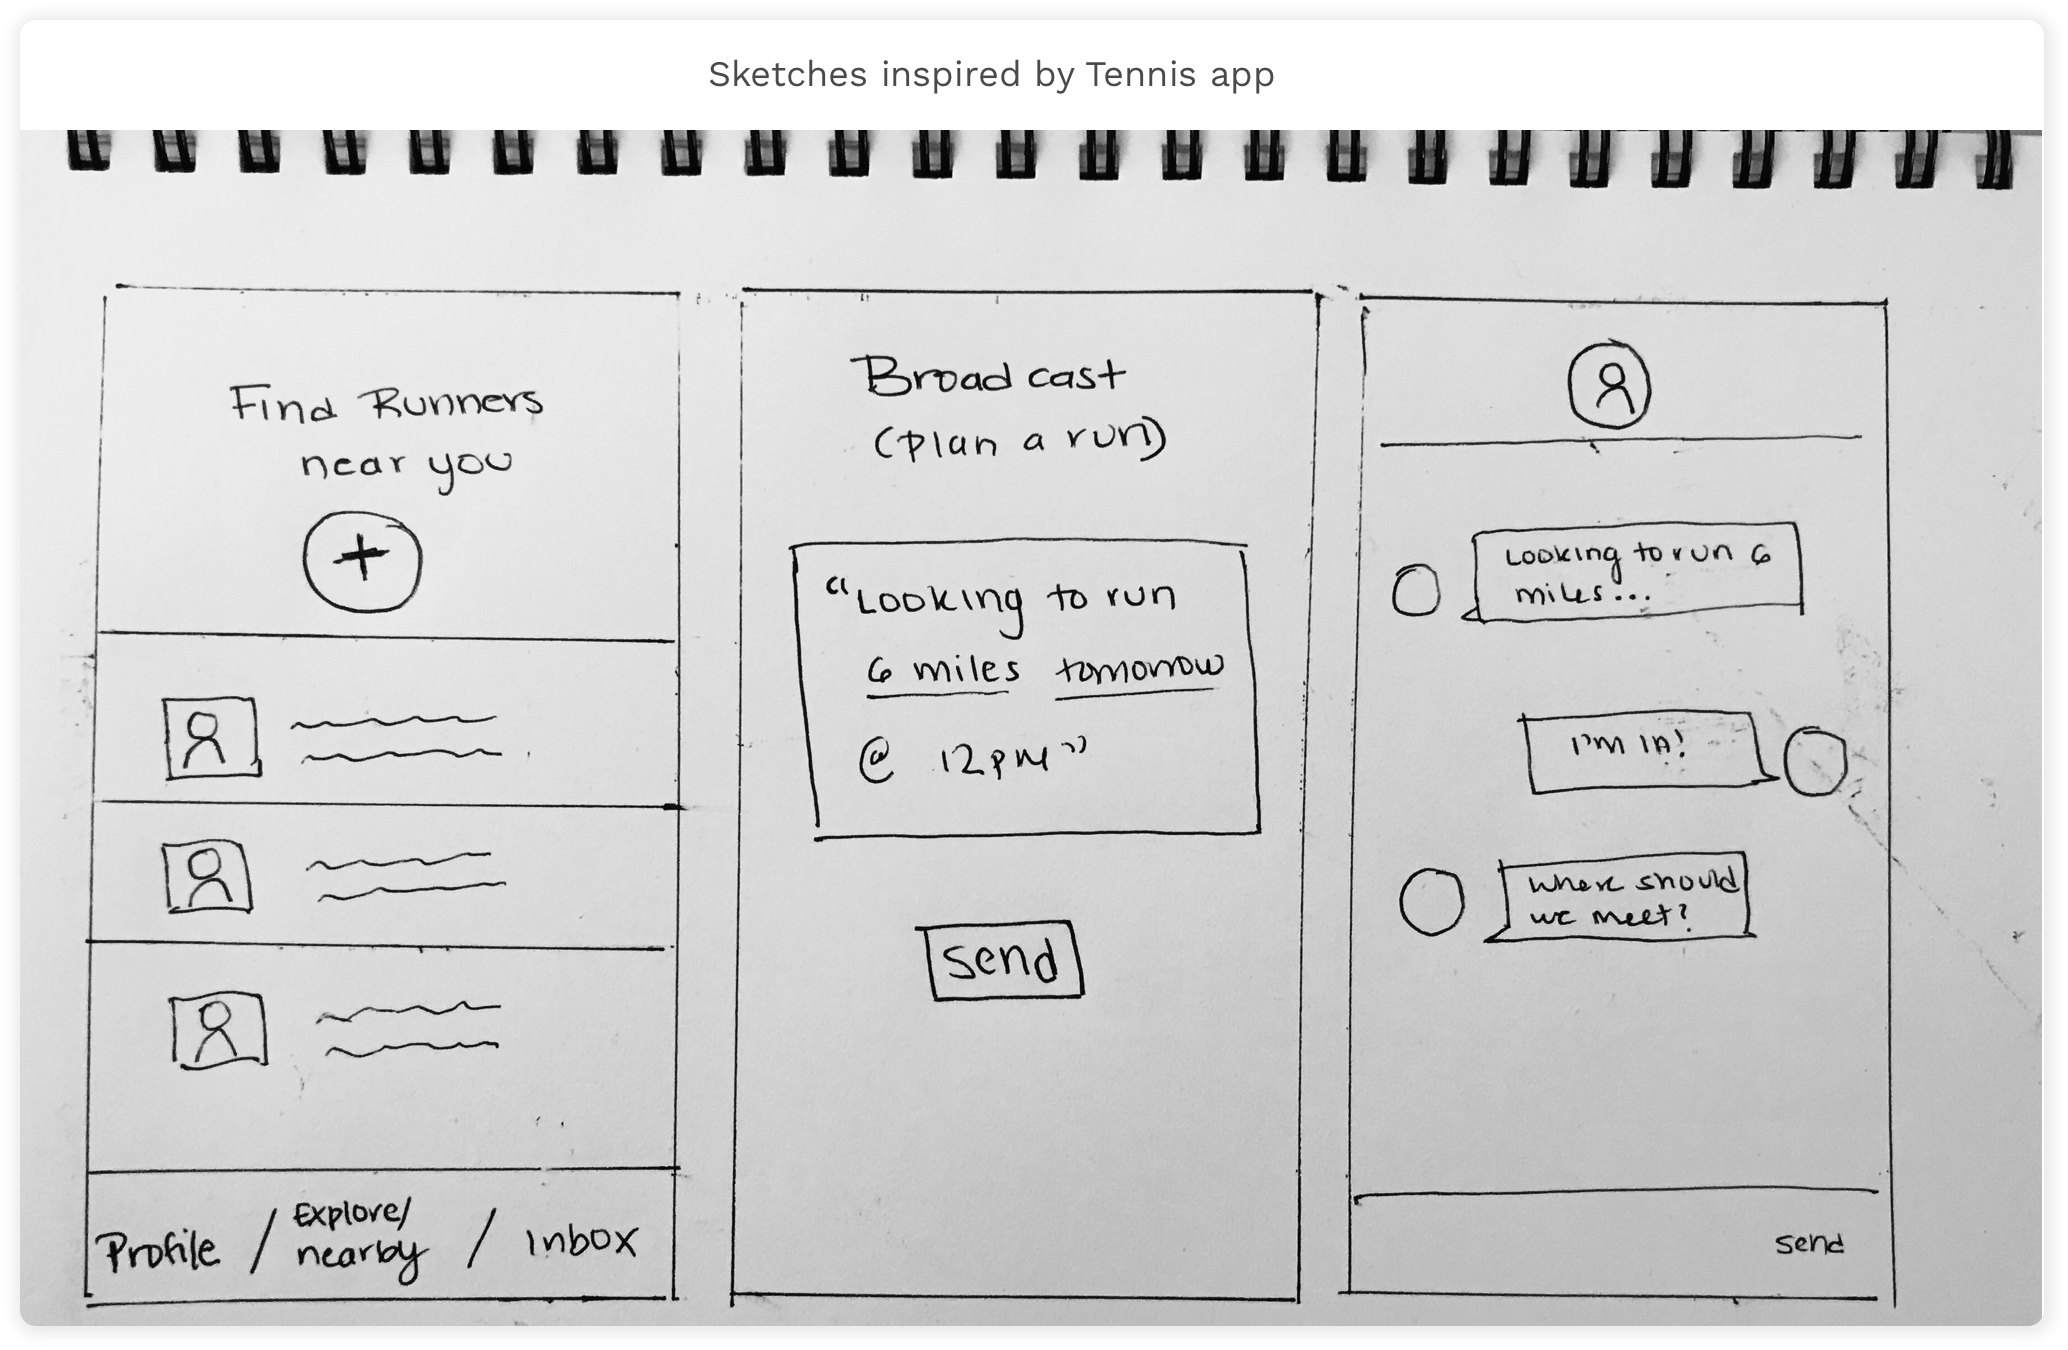 Sketches inspired by Tennis app
Find Runners
near you
+
Profile / Explore/
nearby / Inbox
Broadcast
(plan a run)
"Looking to run
6 miles tomorrow
@ 12PM"
send
Looking to run 6
miles...
I'm in!
where should
we meet?
send